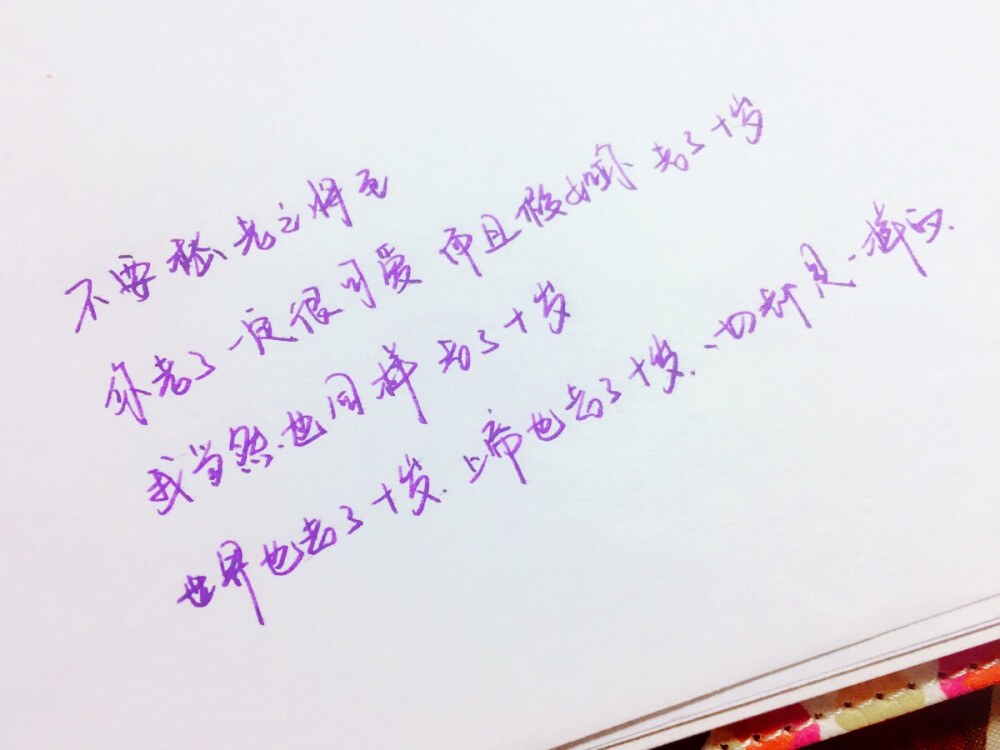 不要愁老之将至
你老了一定很可爱 而且假如你老了十岁
我当然也同样老了十岁
世界也老了十岁.上帝也老了十岁.一切都是一样的.